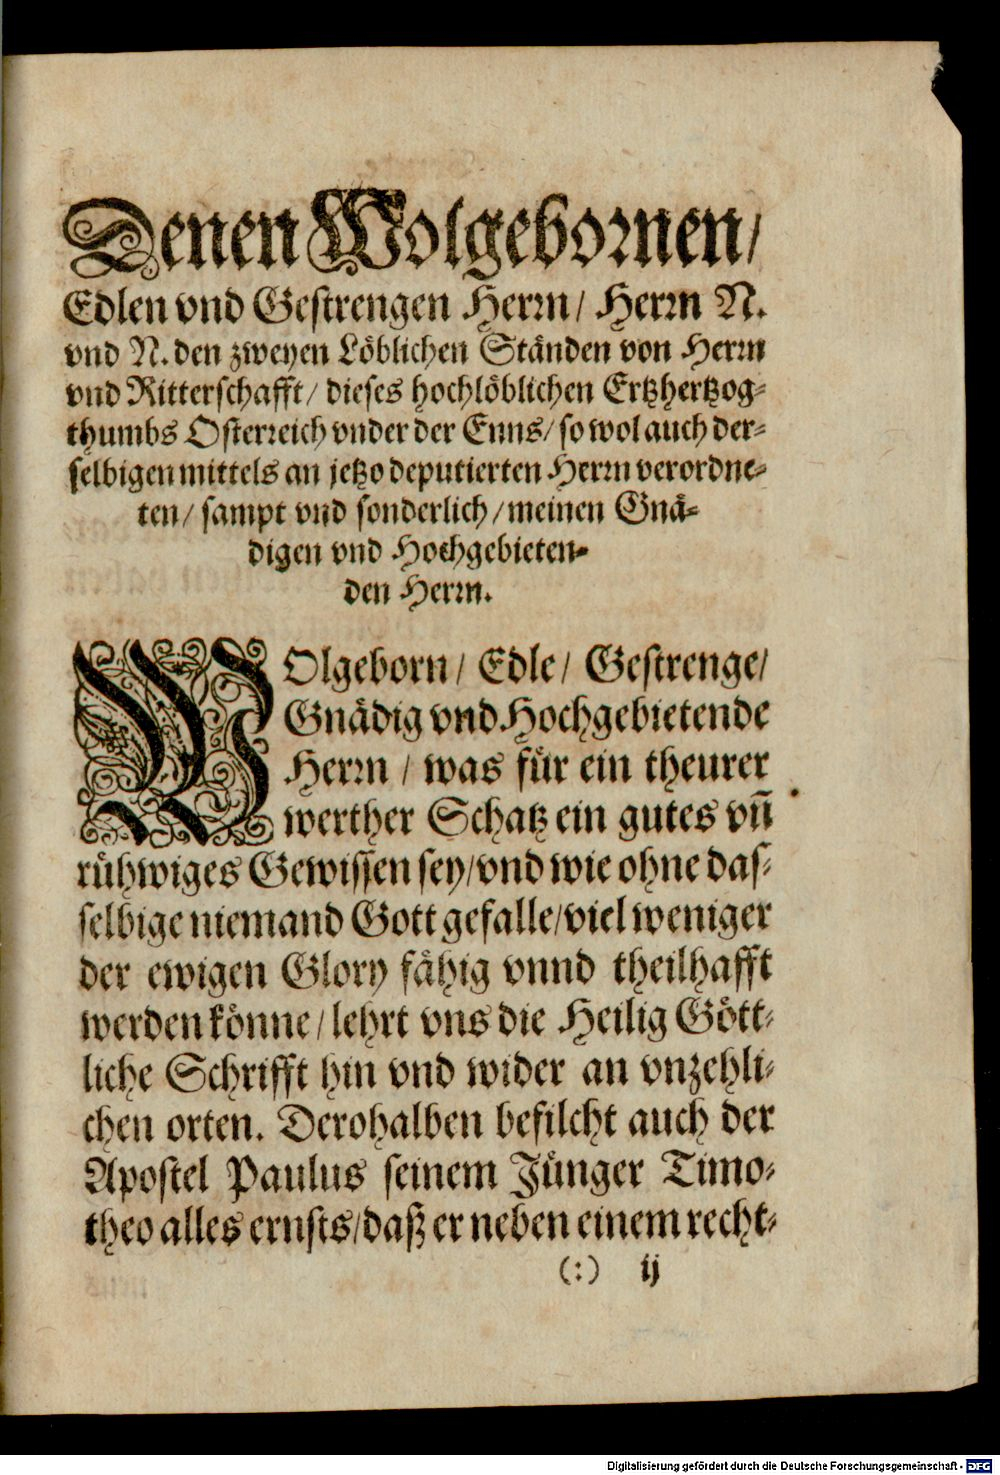 Denen Wolgebornen/
Edlen vnd Gestrengen Herrn/ Herrn N.
vnd N. den zweyen Löblichen Ständen von Herrn
vnd Ritterschafft/ dieses hochlöblichen Ertzhertzog-
thumbs Osterreich vnder der Enns/ so wol auch der-
selbigen mittels an jetzo deputierten Herrn verordne-
ten/ sampt vnd sonderlich/ meinen Gnä-
digen vnd Hochgebieten-
den Herrn.
WOlgeborn/ Edle/ Gestrenge/
Gnädig vnd Hochgebietende
Herrn/ was für ein theurer
werther Schatz ein gutes vñ
rühwiges Gewissen sey/ vnd wie ohne das-
selbige niemand Gott gefalle/ viel weniger
der ewigen Glory fähig vnnd theilhafft
werden könne/ lehrt vns die Heilig Gött-
liche Schrifft hin vnd wider an vnzehli-
chen orten. Derohalben befilcht auch der
Apostel Paulus seinem Jünger Timo-
theo alles ernsts/ daß er neben einem recht-
(:) ij
Digitalisierung gefördert durch die Deutsche Forschungsgemeinschaft - DFG